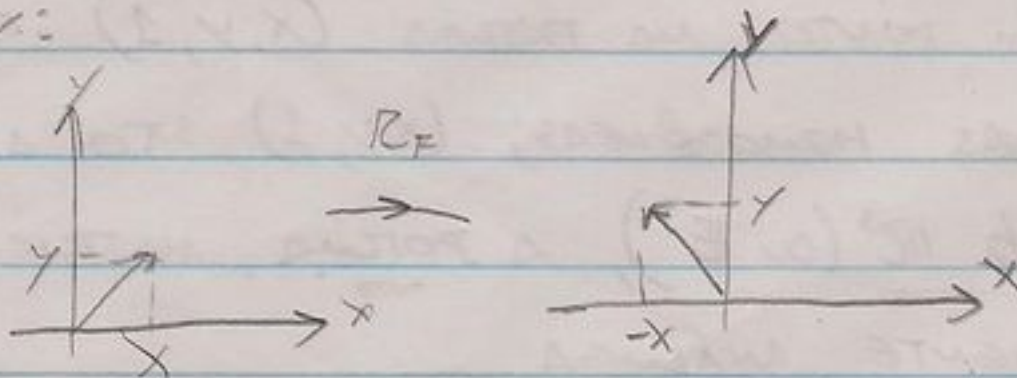 y:
y
y
R_F
y
y
x
x
x
-x